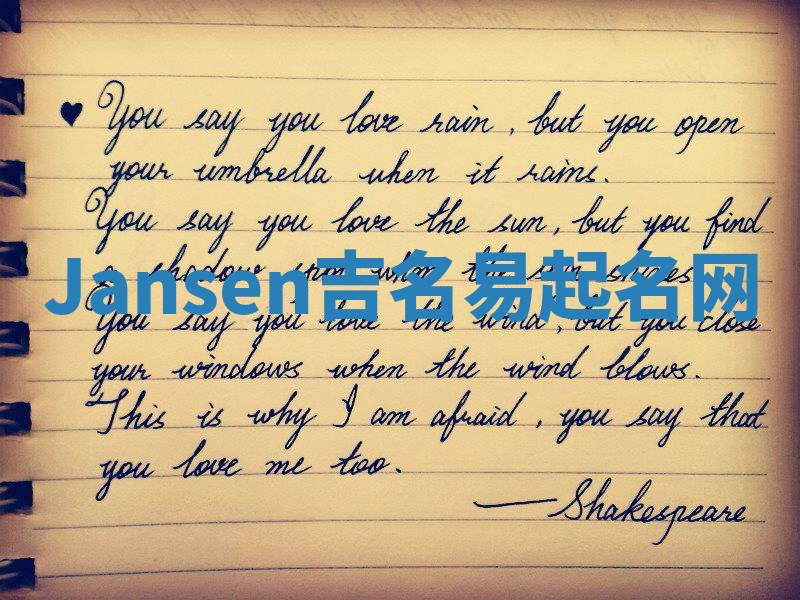 ♥ You say you love rain, but you open
your umbrella when it rains.
You say you love the sun, but you find
a shadow spot when the sun shines.
Jansen吉名易起名网
You say you love the wind, but you close
your windows when the wind blows.
This is why I am afraid, you say that
you love me too.
— Shakespeare